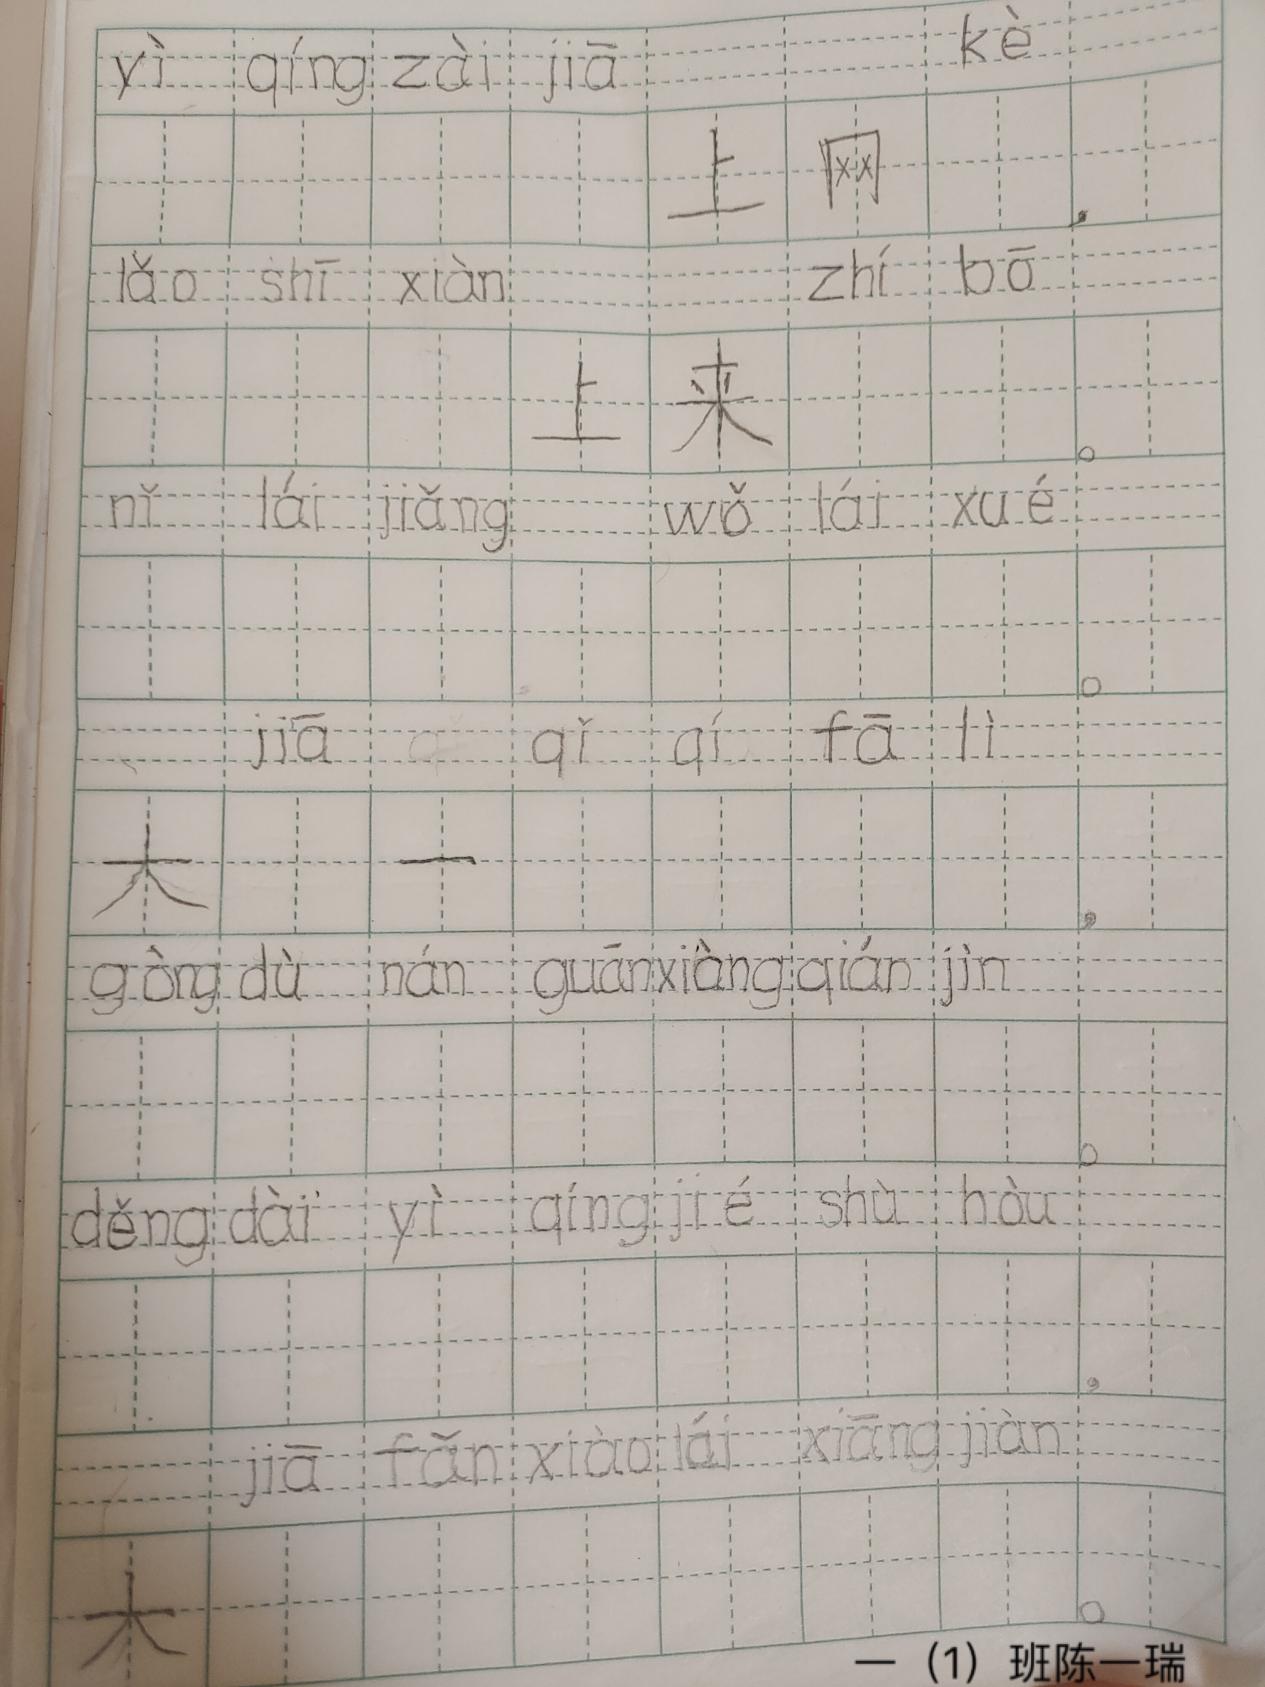 yì qíng zài jiā kè
上网,
lǎo shī xiàn zhí bō
上来。
nǐ lái jiǎng wǒ lái xué
。
jiā qǐ qí fā lì
大一,
gòng dù nán guān xiàng qián jìn
。
děng dài yì qíng jié shù hòu
,
jiā fǎn xiào lái xiāng jiàn
大。
一（1）班陈一瑞